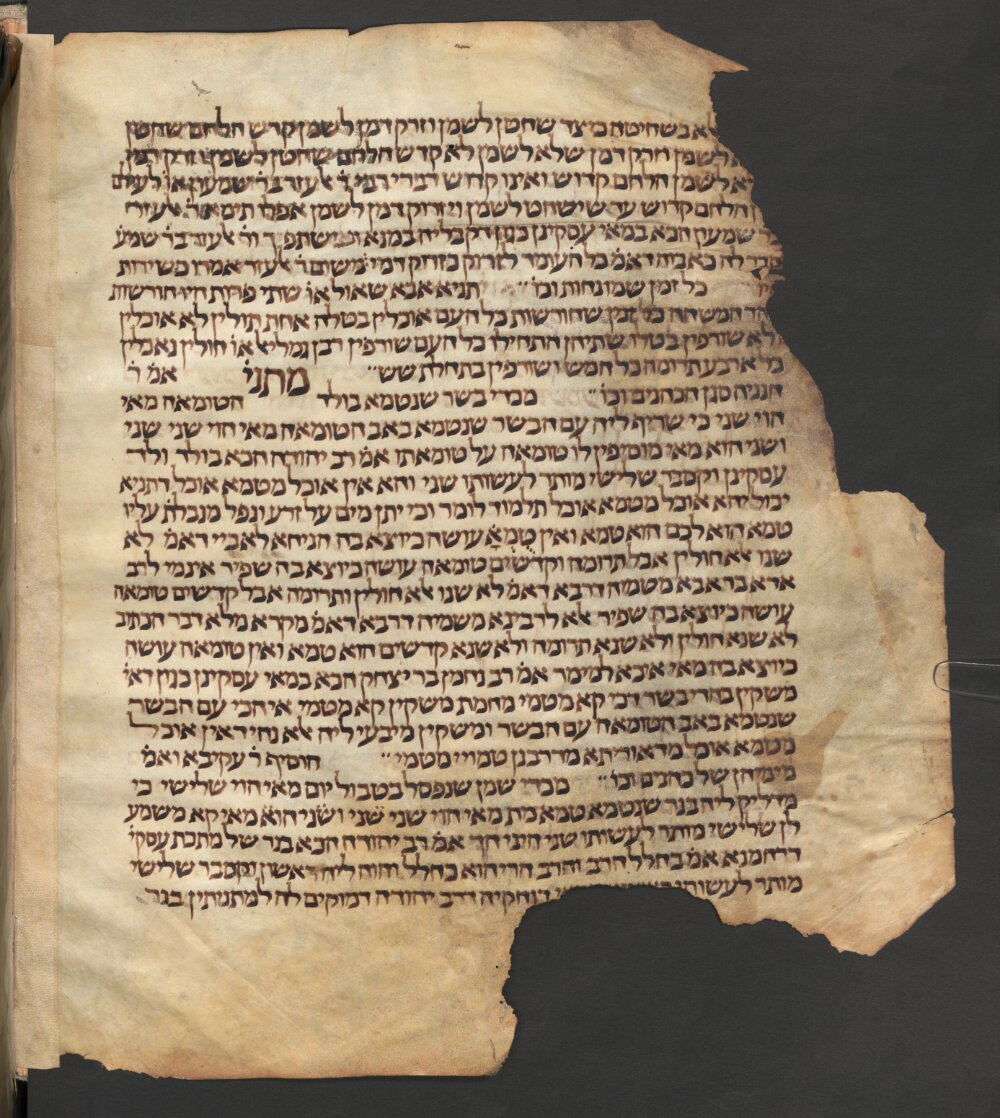 לא בשחיטה כיצד שחטן לשמן וזרק דמן לשמן קדש הלחם שחטן
לשמן וזרק דמן שלא לשמן לא קדש הלחם שחטן לשמן וזרק דמן
לא לשמן הלחם קדוש ואינו קדוש דברי רבי ר׳ לעזר בר׳ שמעון או׳ לעולם
הלחם קדוש עד שישחט לשמן ויזרוק דמן לשמן אפלו תימא ר׳ לעזר
שמעון הכא במאי עסקינן כגון דקבליה במנא ונשתפך ור׳ לעזר בר׳ שמע׳
סבר לה כאביה דאמ׳ כל העומד לזרוק כזרוק דמי משום ר׳ לעזר אמרו כשירות
כל זמן שמונחות וכו׳ תניא אבא שאול או׳ שתי פרות היו חורשות
הר המשחה כל זמן שחורשות כל העם אוכלין בטלה אחת תולין לא אוכלין
ולא שורפין בטלו שתיהן התחילו כל העם שורפין רבן גמליא׳ או׳ חולין נאכלין
כל ארבע תרומה כל חמש ושורפין בתחלת שש מתני׳ אמ׳ ר׳
חנניה סגן הכהנים וכו׳ מכדי בשר שנטמא בולד הטומאה מאי
הוי שני כי שריף ליה עם הבשר שנטמא באב הטומאה מאי הוי שני שני
ושני הוא מאי מוסיפין לו טומאה על טומאתו אמ׳ רב יהודה הכא בולד ולד
עסקינן וקסבר שלישי מותר לעשותו שני והא אין אוכל מטמא אוכל דתניא
יכול יהא אוכל מטמא אוכל תלמוד לומר וכי יתן מים על זרע ונפל מנבלת׳ עליו
טמא הוא לכם הוא טמא ואין טמא עושה כיוצא בה הניחא לאביי דאמ׳ לא
שנו אלא חולין אבל תרומה וקדשים טומאה עושה כיוצא בה שפיר אי נמי לרב
אדא בר אבא משמיה דרבא דאמ׳ לא שנו אלא חולין ותרומה אבל קדשים טומאה
עושה כיוצא בה שפיר אלא לרבינא משמיה דרבא דאמ׳ מקרא מלא דבר הכתוב
לא שנא חולין ולא שנא תרומה ולא שנא קדשים הוא טמא ואין טומאה עושה
כיוצא בה מאי איכא למימר אמ׳ רב נחמן בר יצחק הכא במאי עסקינן כגון דאי׳
משקין בהדי בשר דכי קא מטמי מחמת משקין קא מטמי אי הכי עם הבשר
שנטמא באב הטומאה עם הבשר ומשקין מיבעי ליה אלא נהי דאין אוכל
מטמא אוכל מדאוריתא מדרבנן טמויי מטמי הוסיף ר׳ עקיבא ואמ׳
מימיהן של כהנים וכו׳ מכדי שמן שנפסל בטבול יום מאי הוי שלישי כי
מדליק ליה בנר שנטמא טמא מת מאי הוי שני שני ושני הוא מאי קא משמע
לן שלישי מותר לעשותו שני היני הך אמ׳ רב יהודה הכא בנר של מתכת עסקי׳
דרחמנא אמ׳ בחלל חרב וחרב הרי הוא כחלל והוה ליה ראשון וקסבר שלישי
מותר לעשותו דוחקיה דרב יהודה דמוקים לה למתניתין בנר